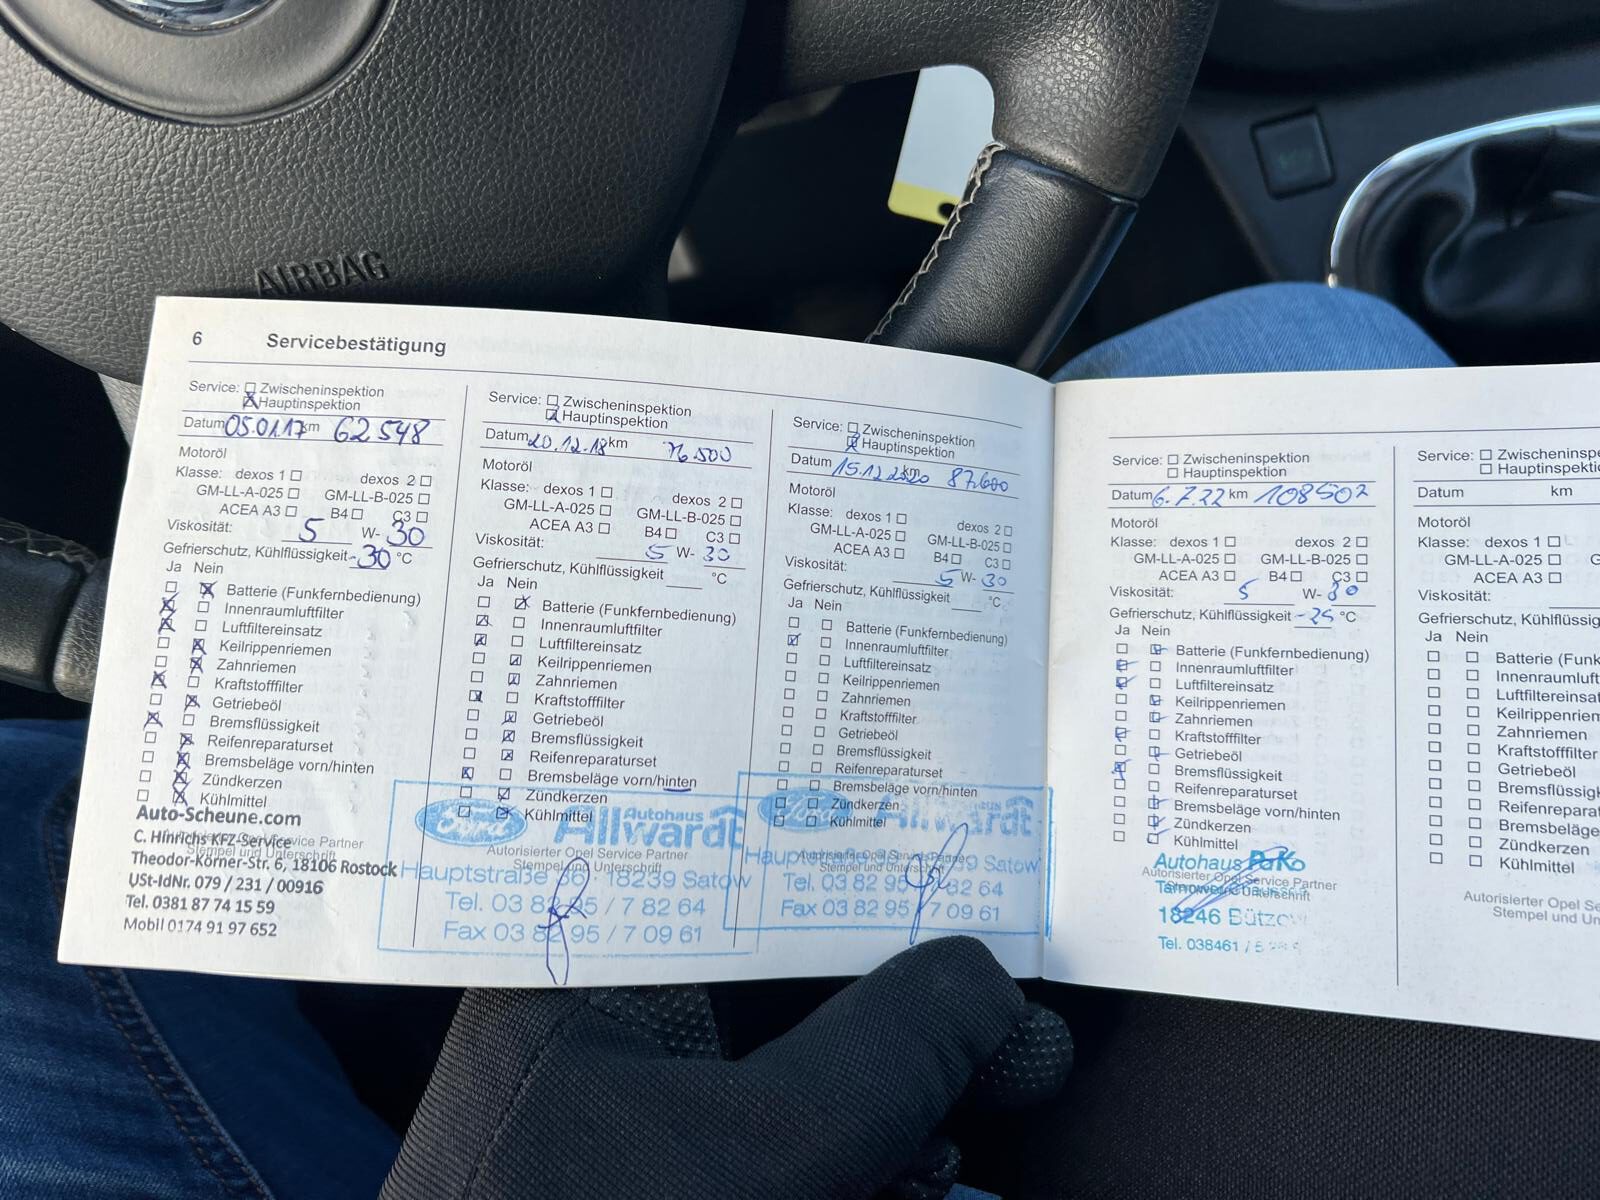 AIRBAG
6 Servicebestätigung
Service: Zwischeninspektion
Hauptinspektion
Datum 05.01.17 km 62 548
Motoröl
Klasse: dexos 1 dexos 2
GM-LL-A-025 GM-LL-B-025
ACEA A3 B4 C3
Viskosität: 5 W- 30
Gefrierschutz, Kühlflüssigkeit -30 °C
Ja Nein
Batterie (Funkfernbedienung)
Innenraumluftfilter
Luftfiltereinsatz
Keilrippenriemen
Zahnriemen
Kraftstofffilter
Getriebeöl
Bremsflüssigkeit
Reifenreparaturset
Bremsbeläge vorn/hinten
Zündkerzen
Kühlmittel
Auto-Scheune.com
C. Hinrichs KFZ-Service
Autorisierter Opel Service Partner
Stempel und Unterschrift
Theodor-Körner-Str. 6, 18106 Rostock
USt-IdNr. 079 / 231 / 00916
Tel. 0381 87 74 15 59
Mobil 0174 91 97 652
Service: Zwischeninspektion
Hauptinspektion
Datum 20.12.18 km 76 500
Motoröl
Klasse: dexos 1 dexos 2
GM-LL-A-025 GM-LL-B-025
ACEA A3 B4 C3
Viskosität: 5 W- 30
Gefrierschutz, Kühlflüssigkeit °C
Ja Nein
Batterie (Funkfernbedienung)
Innenraumluftfilter
Luftfiltereinsatz
Keilrippenriemen
Zahnriemen
Kraftstofffilter
Getriebeöl
Bremsflüssigkeit
Reifenreparaturset
Bremsbeläge vorn/hinten
Zündkerzen
Kühlmittel
Ford Autohaus
Allwardt
Autorisierter Opel Service Partner
Stempel und Unterschrift
Hauptstraße 36 · 18239 Satow
Tel. 03 82 95 / 7 82 64
Fax 03 82 95 / 7 09 61
Service: Zwischeninspektion
Hauptinspektion
Datum 15.12.2020 km 87600
Motoröl
Klasse: dexos 1 dexos 2
GM-LL-A-025 GM-LL-B-025
ACEA A3 B4 C3
Viskosität: 5 W- 30
Gefrierschutz, Kühlflüssigkeit °C
Ja Nein
Batterie (Funkfernbedienung)
Innenraumluftfilter
Luftfiltereinsatz
Keilrippenriemen
Zahnriemen
Kraftstofffilter
Getriebeöl
Bremsflüssigkeit
Reifenreparaturset
Bremsbeläge vorn/hinten
Zündkerzen
Kühlmittel
Allwardt
Autorisierter Opel Service Partner
Stempel und Unterschrift
Satow
Tel. 03 82 95 / 7 82 64
Fax 03 82 95 / 7 09 61
Service: Zwischeninspektion
Hauptinspektion
Datum 6.7.22 km 108502
Motoröl
Klasse: dexos 1 dexos 2
GM-LL-A-025 GM-LL-B-025
ACEA A3 B4 C3
Viskosität: 5 W- 30
Gefrierschutz, Kühlflüssigkeit -25 °C
Ja Nein
Batterie (Funkfernbedienung)
Innenraumluftfilter
Luftfiltereinsatz
Keilrippenriemen
Zahnriemen
Kraftstofffilter
Getriebeöl
Bremsflüssigkeit
Reifenreparaturset
Bremsbeläge vorn/hinten
Zündkerzen
Kühlmittel
Autohaus PaKo
Autorisierter Opel Service Partner
18246 Bützow
Tel. 038461 / 5
Service: Zwischeninspe
Hauptinspektio
Datum km
Motoröl
Klasse: dexos 1
GM-LL-A-025 G
ACEA A3
Viskosität:
Gefrierschutz, Kühlflüssig
Ja Nein
Batterie (Funk
Innenraumluft
Luftfiltereinsat
Keilrippenriem
Zahnriemen
Kraftstofffilter
Getriebeöl
Bremsflüssigk
Reifenreparatu
Bremsbeläge
Zündkerzen
Kühlmittel
Autorisierter Opel Se
Stempel und Un